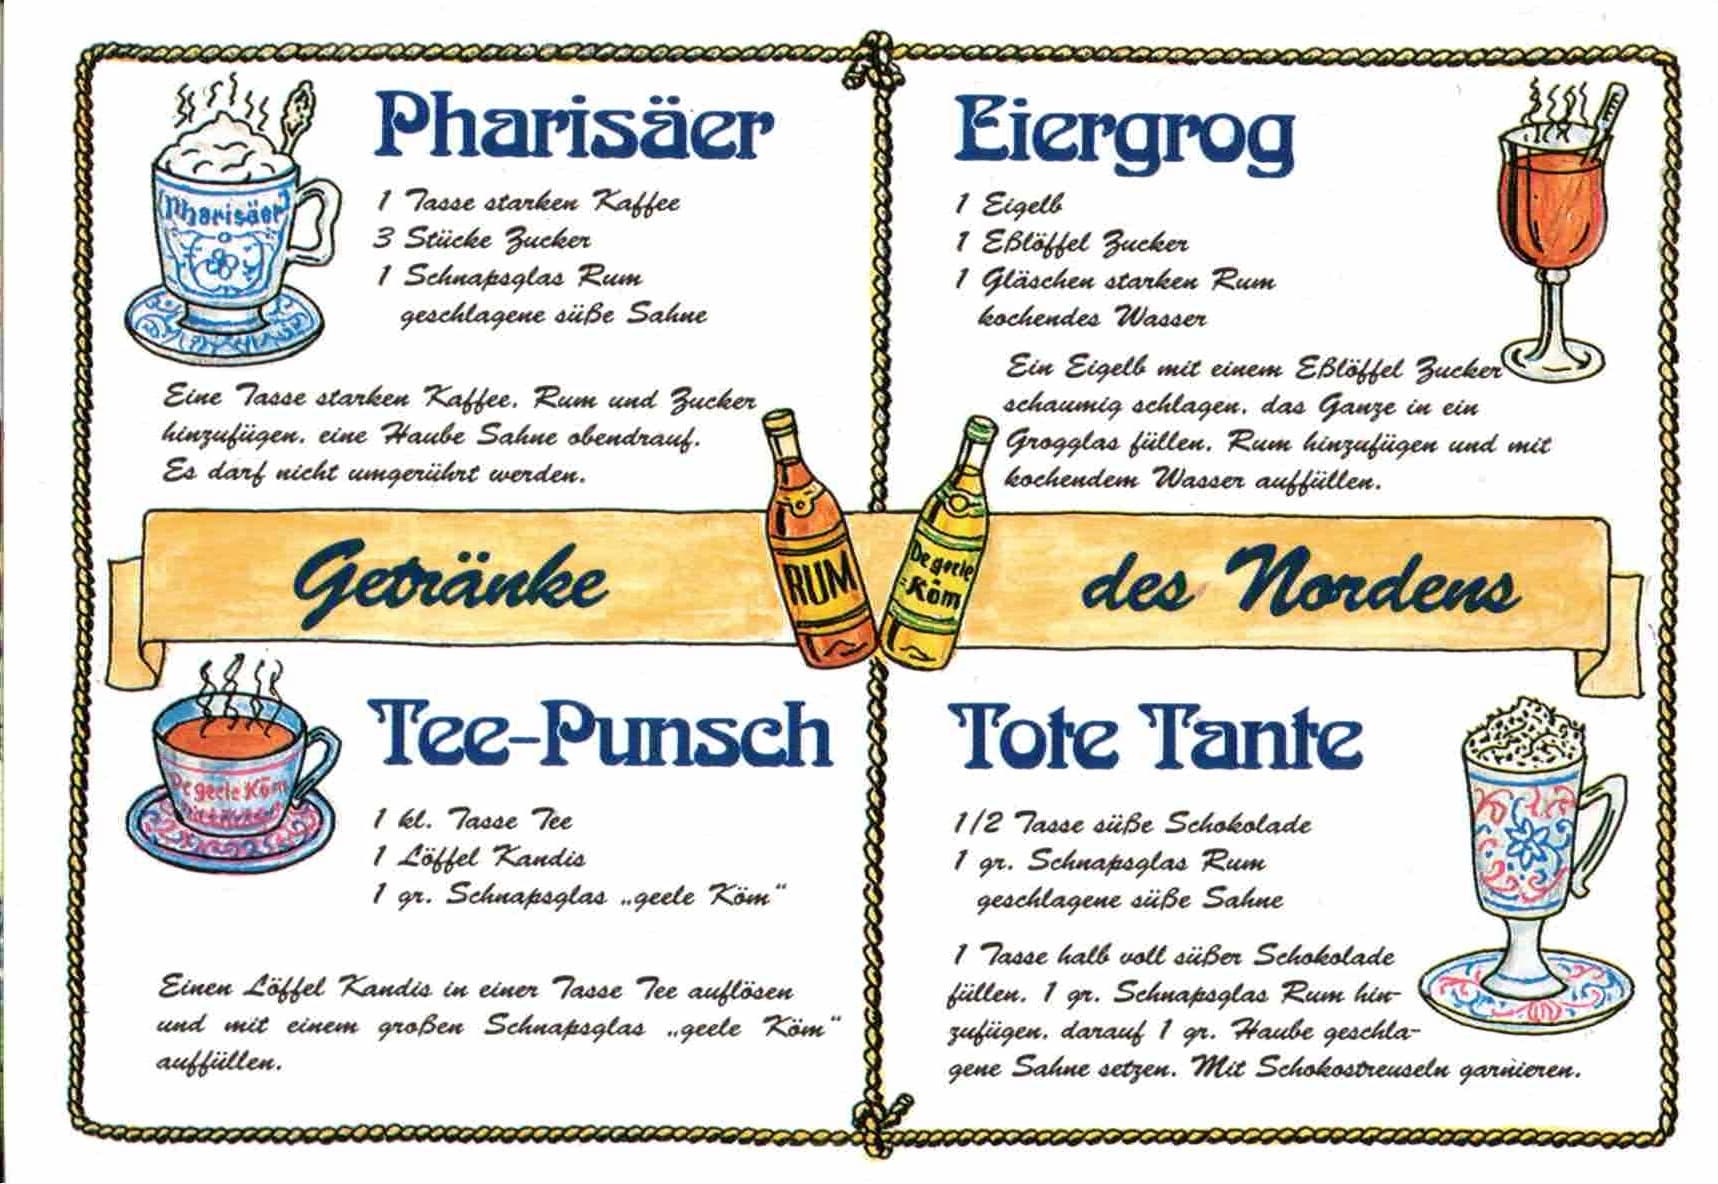 Pharisäer
1 Tasse starken Kaffee
3 Stücke Zucker
1 Schnapsglas Rum
geschlagene süße Sahne
Eine Tasse starken Kaffee, Rum und Zucker
hinzufügen, eine Haube Sahne obendrauf.
Es darf nicht umgerührt werden.
Pharisäer
Eiergrog
1 Eigelb
1 Eßlöffel Zucker
1 Gläschen starken Rum
kochendes Wasser
Ein Eigelb mit einem Eßlöffel Zucker
schaumig schlagen, das Ganze in ein
Grogglas füllen, Rum hinzufügen und mit
kochendem Wasser auffüllen.
Getränke
RUM
De geele
Köm
des Nordens
Tee-Punsch
1 kl. Tasse Tee
1 Löffel Kandis
1 gr. Schnapsglas „geele Köm“
Einen Löffel Kandis in einer Tasse Tee auflösen
und mit einem großen Schnapsglas „geele Köm“
auffüllen.
De geele Köm
Tote Tante
1/2 Tasse süße Schokolade
1 gr. Schnapsglas Rum
geschlagene süße Sahne
1 Tasse halb voll süßer Schokolade
füllen, 1 gr. Schnapsglas Rum hin-
zufügen, darauf 1 gr. Haube geschla-
gene Sahne setzen. Mit Schokostreuseln garnieren.